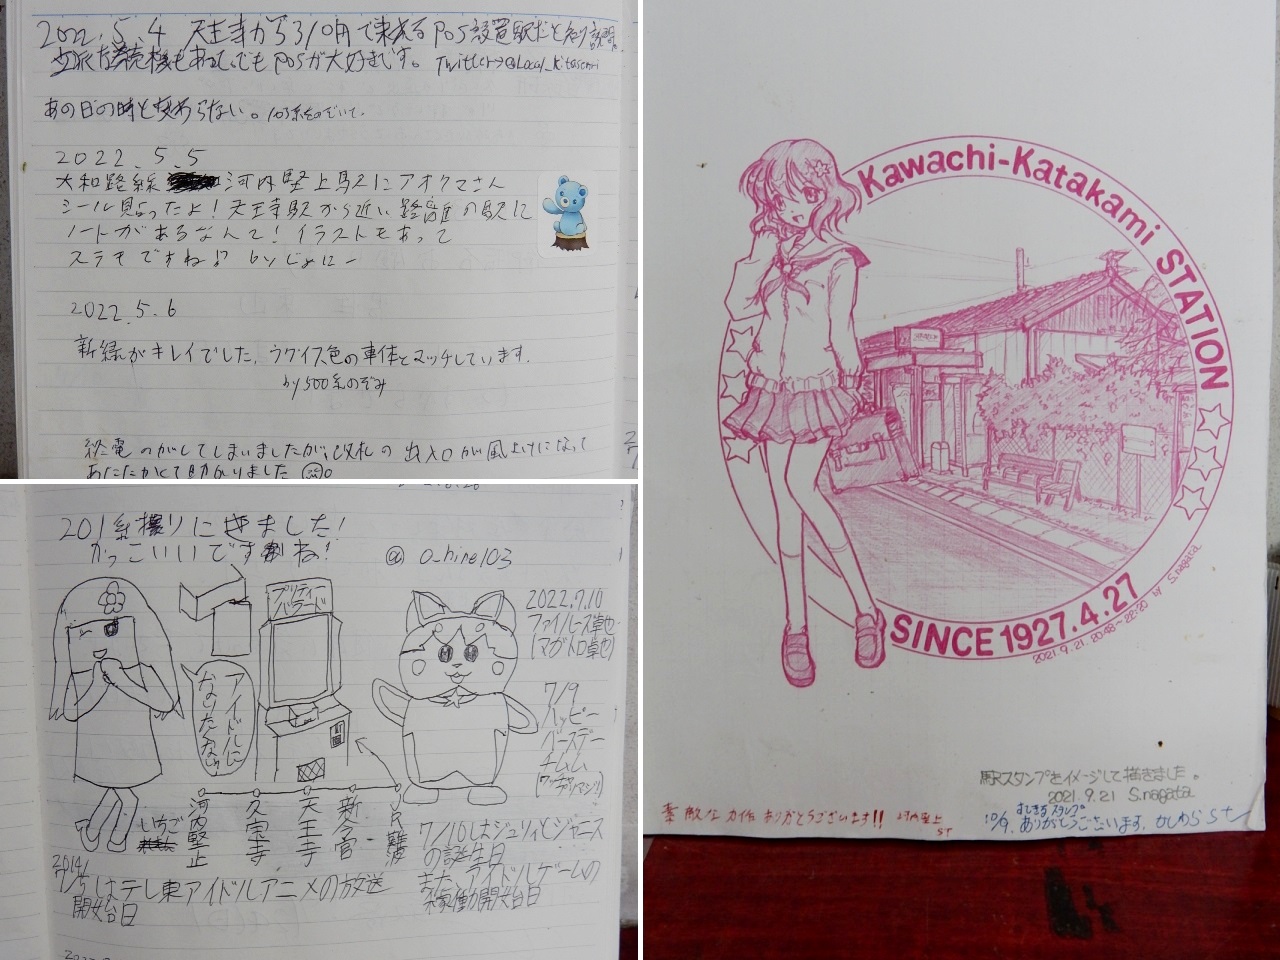 2022.5.4 天王寺から310円で来れるPOS設置駅だと知り訪問。
立派な券売機もあって、でもPOSが大好きです。 Twitter→@Local_Kitaseni
あの日の時と変わらない。
2022.5.5
大和路線 河内堅上駅にアオクマさん
シール貼ったよ!天王寺駅から近い路線の駅に
ノートがあるなんて!イラストもあって
ステキですね!! byじょにー
2022.5.6
新緑がキレイでした。ウグイス色の車体とマッチしています。
by 500系のぞみ
終電のがしてしまいましたが、改札の出入口が風上けになって
あたたかくて助かりました
201系撮りにきました!
かっこいいですね!
@ o_hine103
プリティ
バラード
2022.7.10
ファイルース卓也
(マグナトロ卓也)
アイドルに
なりたくない?
7/9
ハッピー
バースデー
チムム
(ワッチャプリマジ!)
河内堅上
久宝寺
天王寺
新今宮
JR難波
いちご
2014/
7/5はテレ東アイドルアニメの放送
開始日
7/10はジュリィとジャニス
の誕生日
また、アイドルゲームの
稼働開始日
Kawachi-Katakami STATION
SINCE 1927.4.27
2021.9.21. 20:48~22:20 by S.nagata
駅スタンプをイメージして描きました。
2021.9.21 S.nagata
素敵な力作ありがとうございます!! 河内堅上
ST
10/9. ありがとうございます。かしわらSt